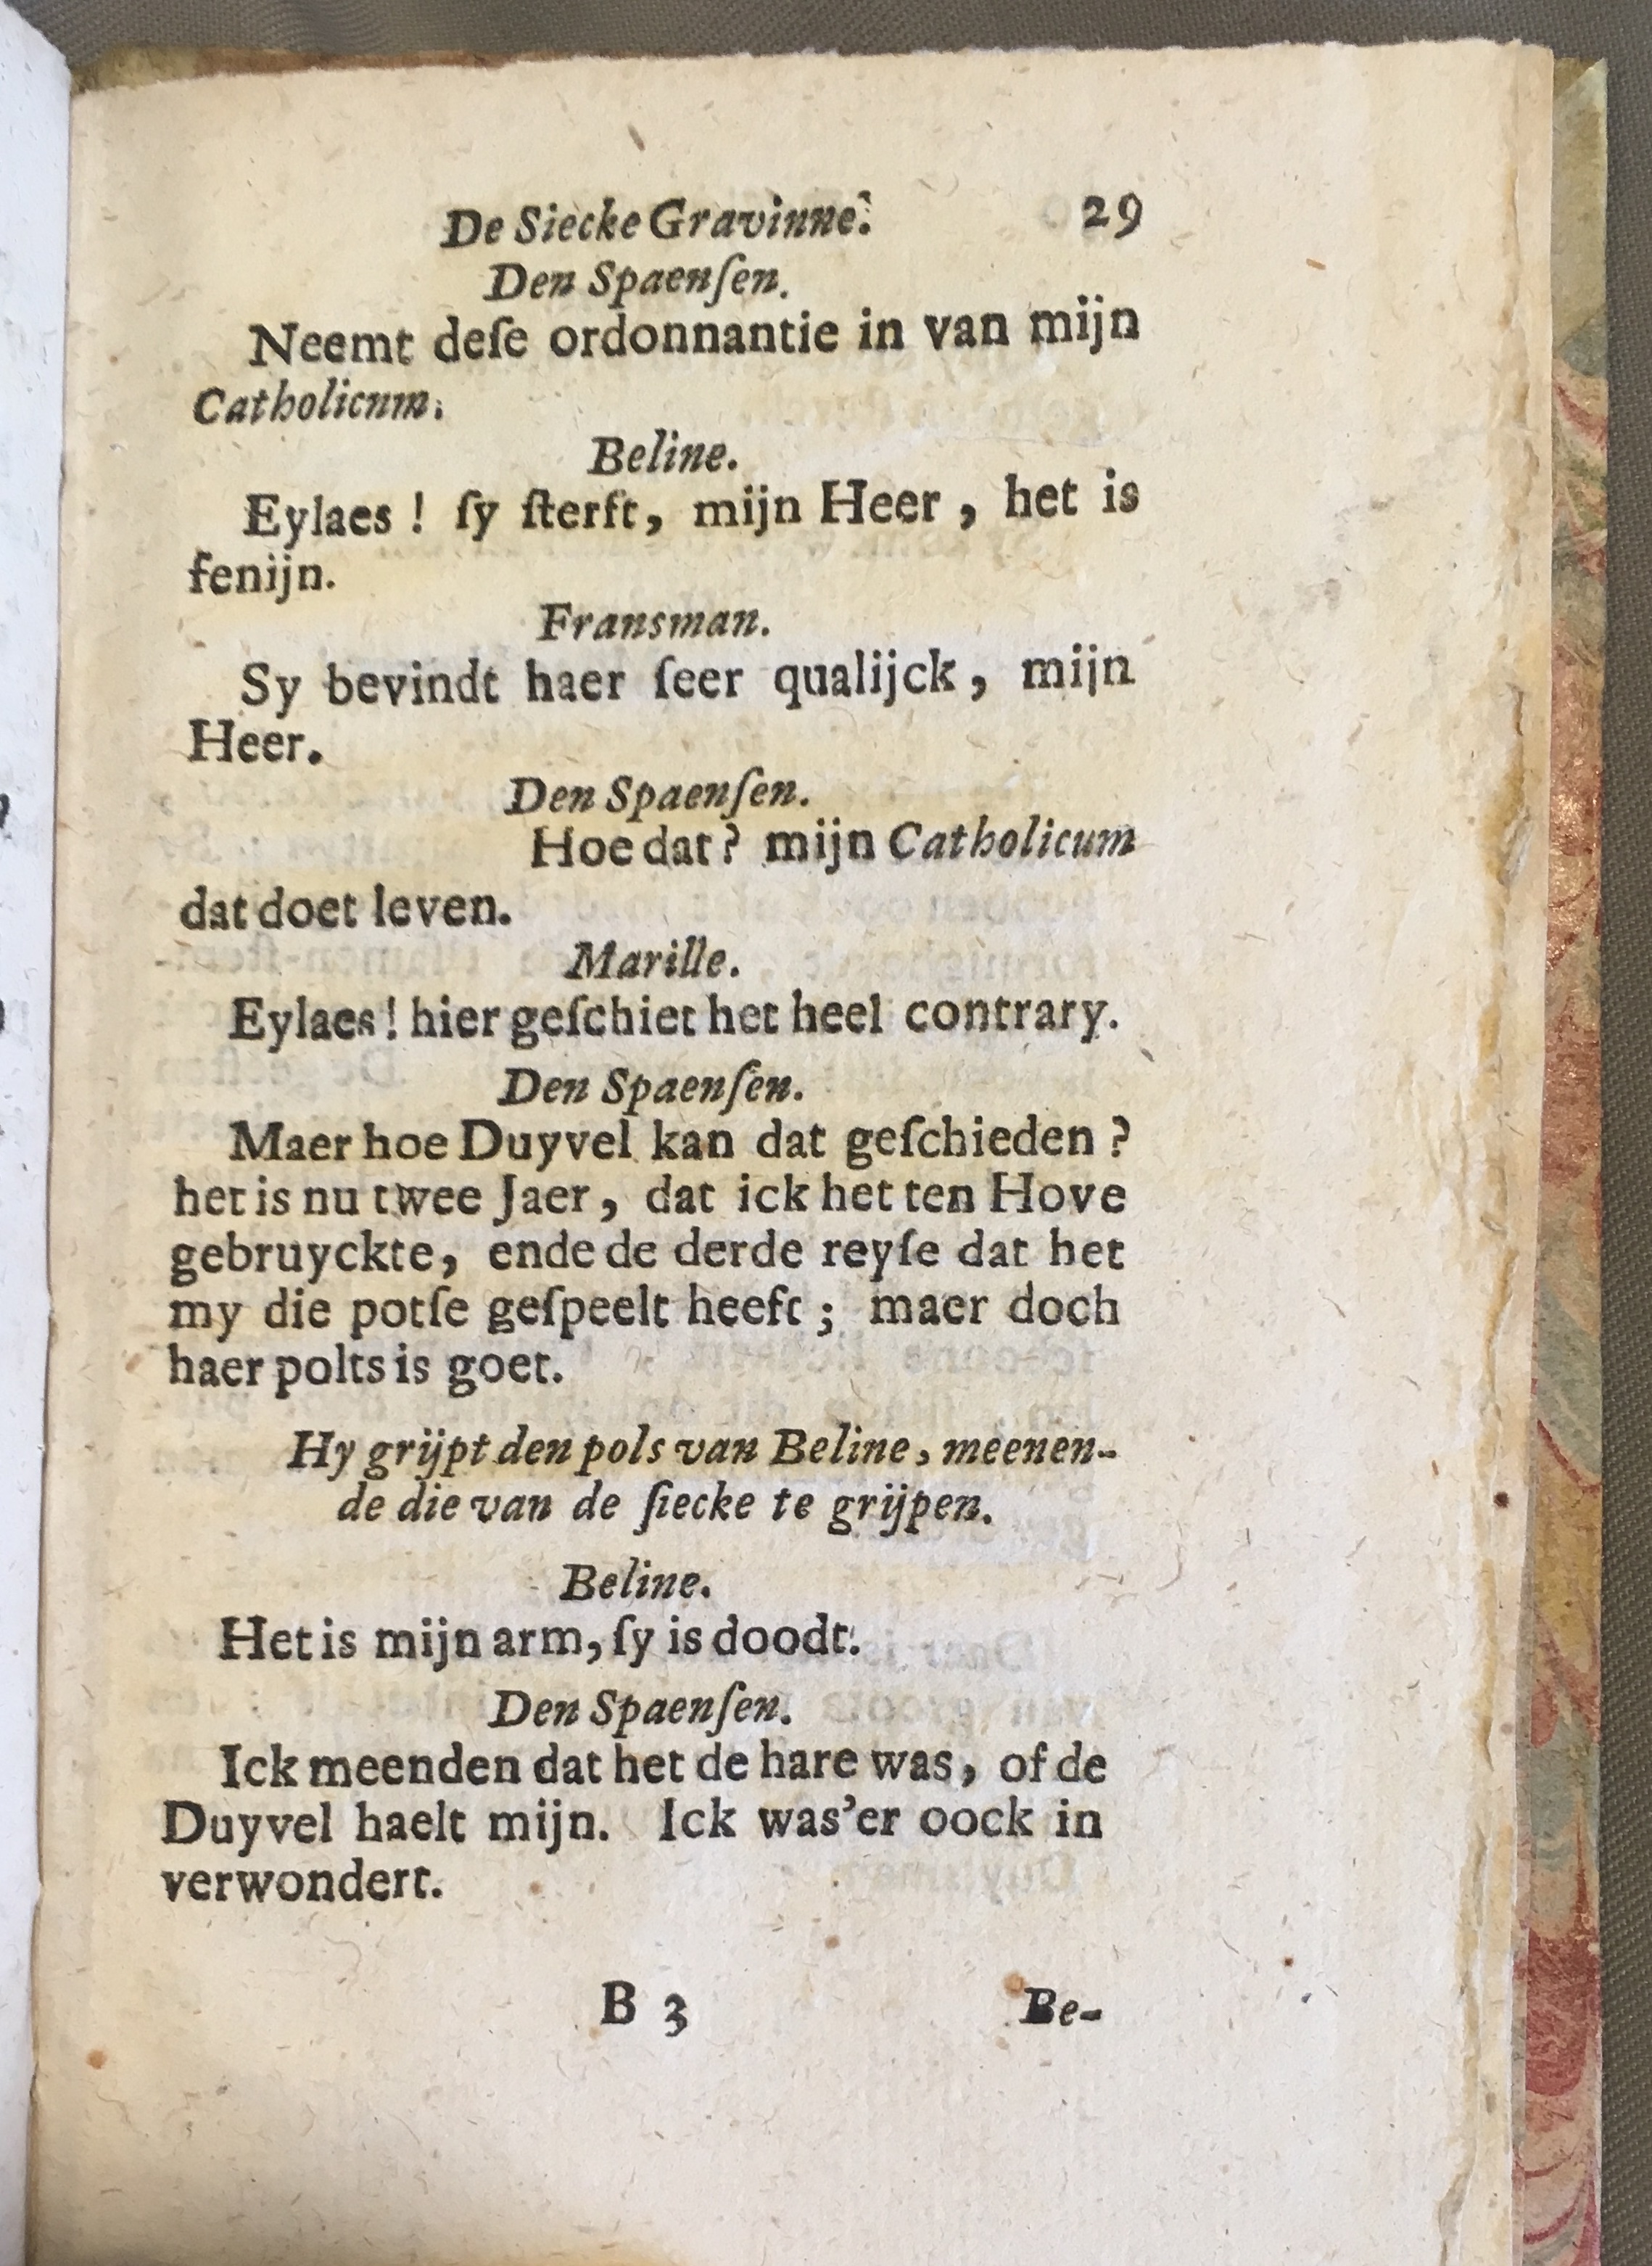 De Siecke Gravinne. 29
Den Spaenſen.
Neemt deſe ordonnantie in van mijn
Catholicum.
Beline.
Eylaes ! ſy ſterft, mijn Heer , het is
fenijn.
Fransman.
Sy bevindt haer ſeer qualijck, mijn
Heer.
Den Spaenſen.
Hoe dat? mijn Catholicum
dat doet leven.
Marille.
Eylaes! hier geſchiet het heel contrary.
Den Spaenſen.
Maer hoe Duyvel kan dat geſchieden ?
het is nu twee Jaer, dat ick het ten Hove
gebruyckte, ende de derde reyſe dat het
my die potſe geſpeelt heeft ; maer doch
haer polts is goet.
Hy grijpt den pols van Beline, meenen-
de die van de ſiecke te grijpen.
Beline.
Het is mijn arm, ſy is doodt.
Den Spaenſen.
Ick meenden dat het de hare was, of de
Duyvel haelt mijn. Ick was'er oock in
verwondert.
B 3 Be-